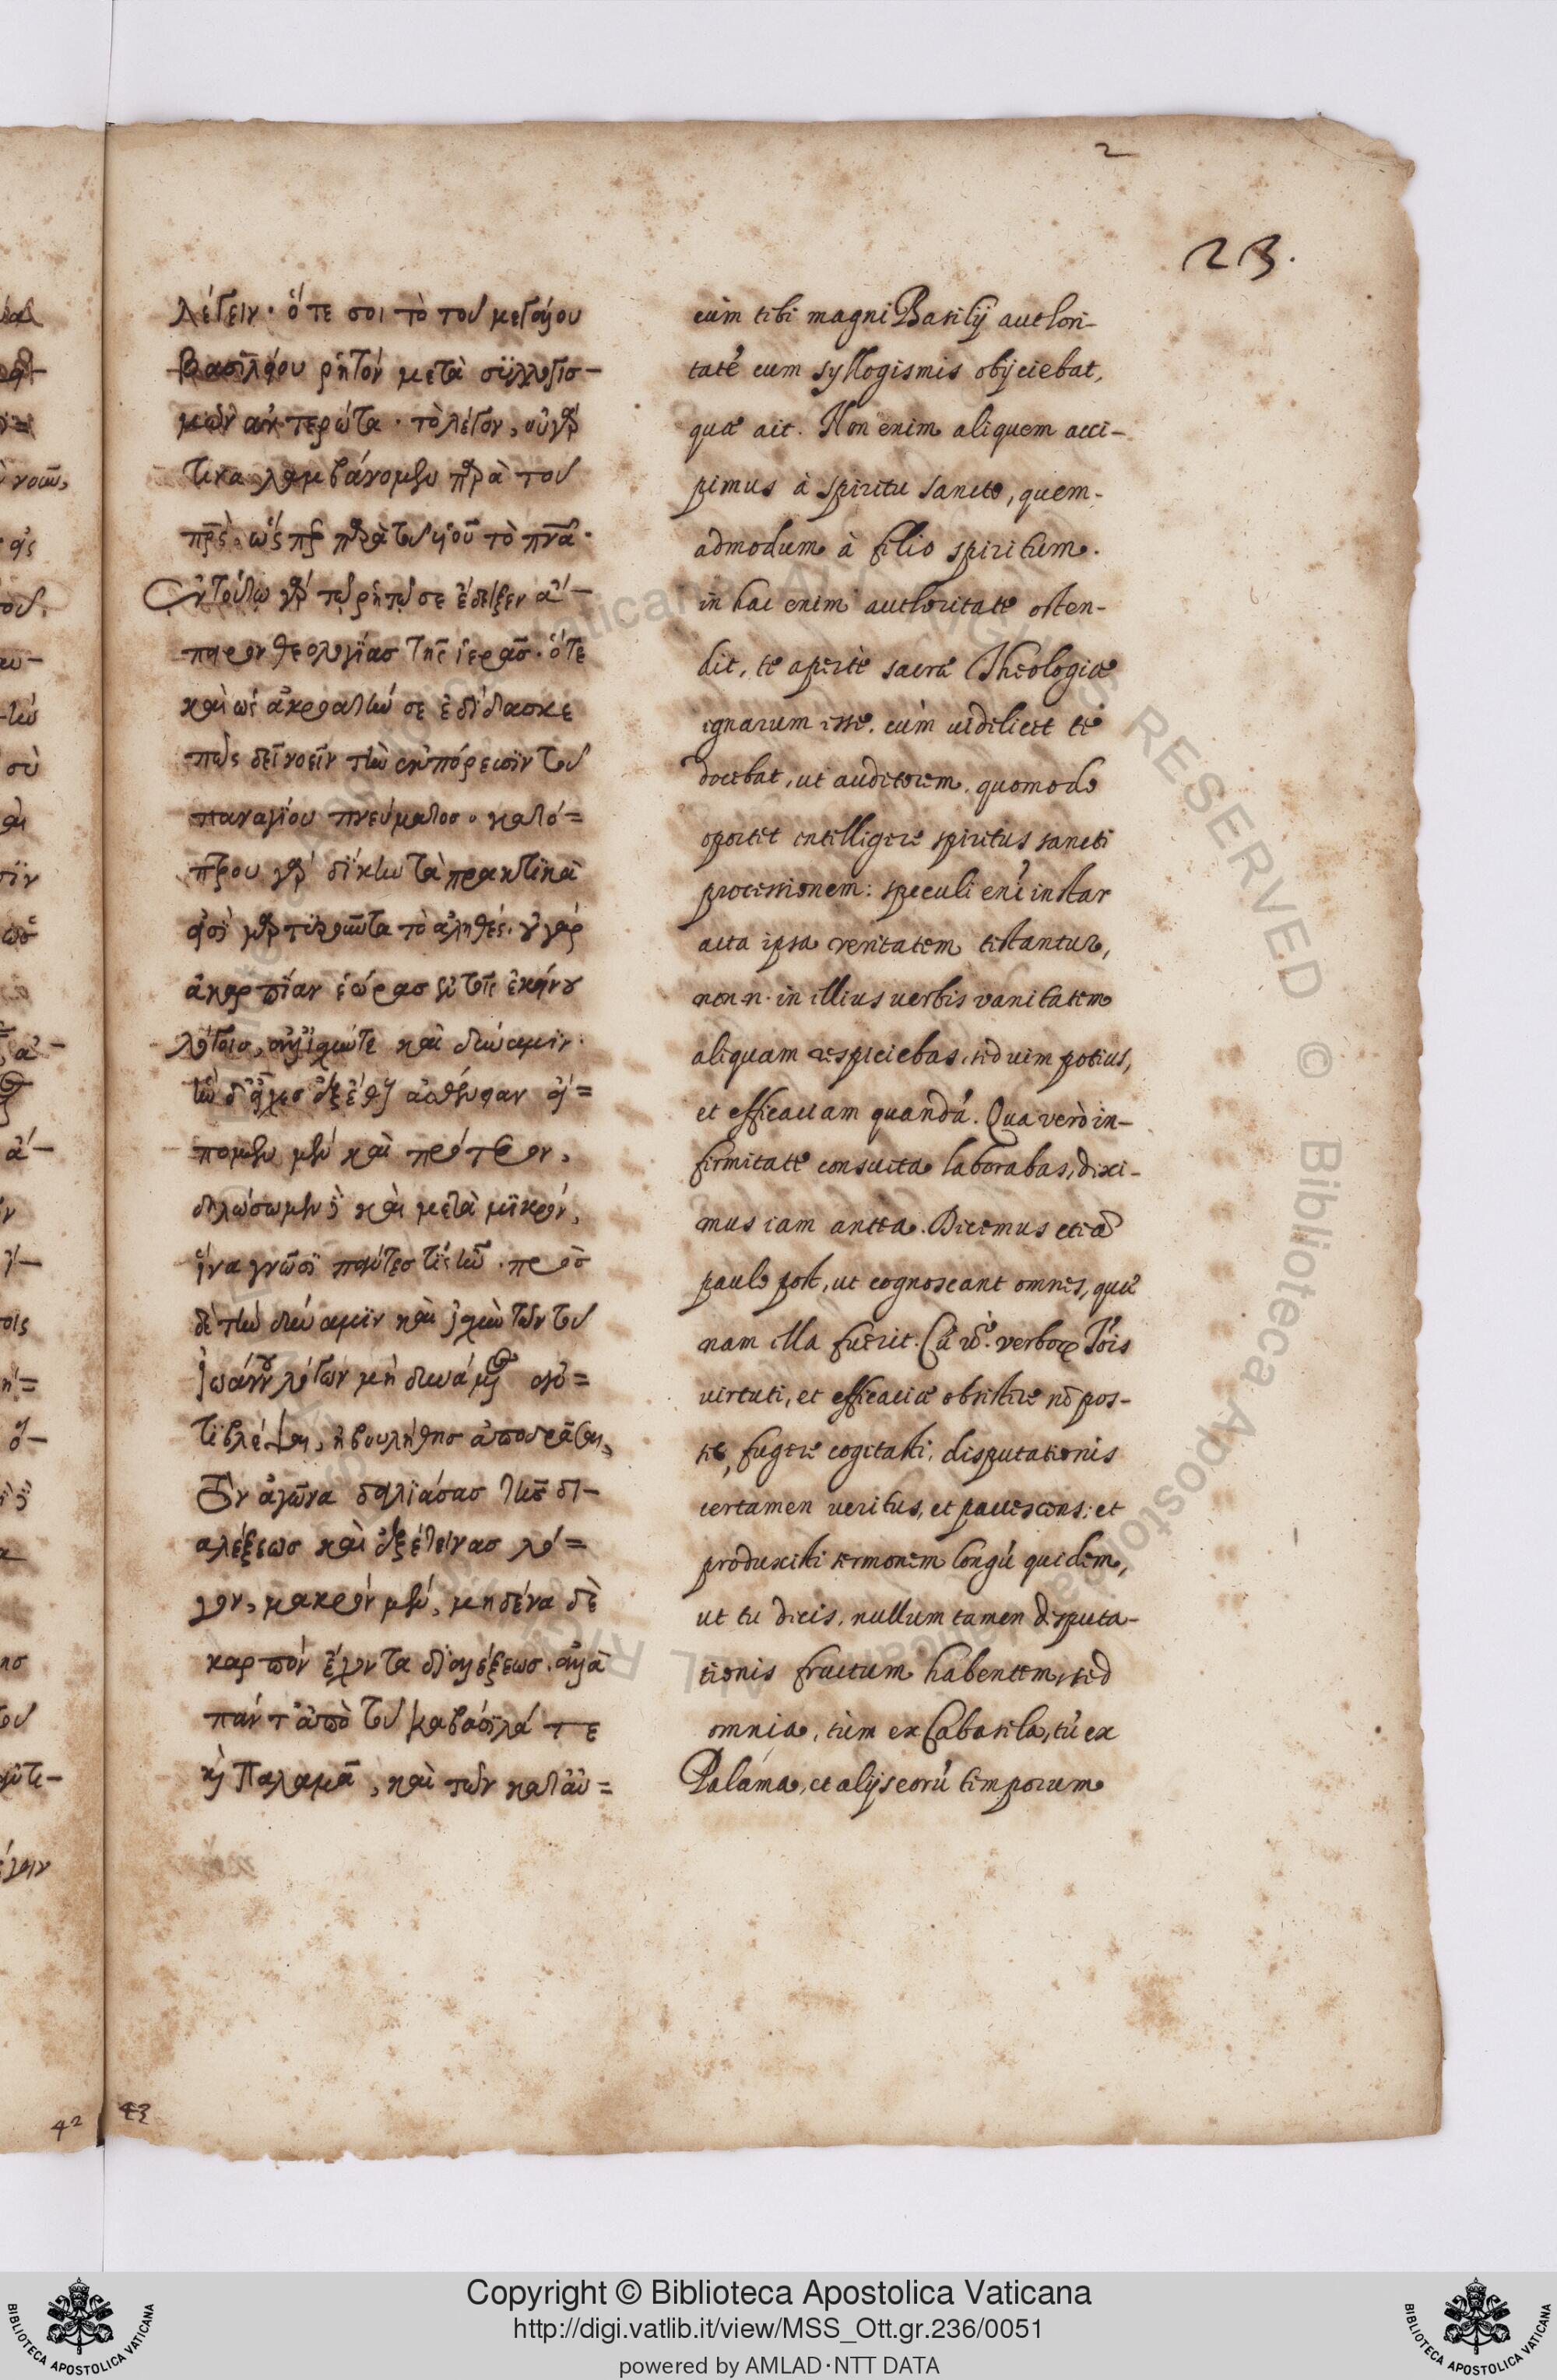 2
23.
λέγειν· ὅτε σοι τὸ τοῦ μεγάλου
βασιλείου ῥητόν μετὰ συλλογισ-
μῶν ἀντερώτα· τὸ λέγον, οὐ γὰρ
τινα λαμβάνομεν παρὰ τοῦ
πρς, ὥς περ παρὰ τοῦ υἱοῦ τὸ πνα·
ἐν τούτω γὰρ τῶ ῥητῶ σε ἔδειξεν ἄ-
πειρον θεολογίας τῆς ἱερᾶς· ὅτε
καὶ ὡς ἀκροατήν σε ἐδίδασκε
πῶς δεῖ νοεῖν τὴν ἐκπόρευσιν τοῦ
παναγίου πνεύματος· κατό=
πτρου γὰρ δίκην τὰ πρακτικὰ
τὸ ἀληθές. οὐ γὰρ
ἀκαρπίαν ἑώρας ἐν τοῖς ἐκείνου
λόγοις, ἀλλ' ἰσχύν τε καὶ δύναμιν·
πομεν μὲν καὶ πρότερον,
δηλώσωμεν δὲ καὶ μετὰ μικρόν,
ἵνα γνῶσι πάντες τίς ἦν. πρὸς
δὲ τὴν δύναμιν καὶ ἰσχὺν τῶν τοῦ
Ἰωάννου λόγων μὴ δυνάμενος ἀν=
τιβλέψαι, ἠβουλήθης ἀποδρᾶσαι,
τὸν ἀγῶνα δειλιάσας τῆς δι-
αλέξεως καὶ ἐξέτεινας λό=
γον, μακρόν μέν, μηδένα δὲ
καρπόν ἔχοντα διαλέξεως. ἀλλὰ
πάντ' ἀπὸ τοῦ καβάσιλά τε
κ Παλαμᾶ, καὶ τῶν κατ' αὐ=
cùm tibi magni Basilij authori-
taté cum syllogismis obijciebat,
quæ ait. Non enim aliquem acci-
pimus à spiritu sancto, quem-
admodum à filio spiritum.
in hac enim authoritate osten-
dit, te apertè sacræ Theologiæ
ignarum esse. cùm uidelicet te
docebat, ut auditorem, quomodo
oportet intelligere spiritus sancti
processionem: speculi ení instar
acta ipsa veritatem testantur,
non n. in illius uerbis vanitatem
aliquam respiciebas, sed uim potius,
et efficaciam quandá. Qua verò in-
firmitate consueta laborabas, dixi-
mus iam antea. Dicemus etiã
paulo post, ut cognoscant omnes, quæ
nam illa fuerit. Cú verbor Iois
virtuti, et efficaciæ obsistere nõ pos-
se, fugere cogitasti, disputationis
certamen veritus, et pauescens; et
produxisti sermonem longú quidem,
ut tu dicis, nullum tamen disputa-
tionis fructum habentem, sed
omnia, tùm ex Cabasila, tú ex
Palama, et alijs eorú temporum
42
43
Copyright © Biblioteca Apostolica Vaticana
http://digi.vatlib.it/view/MSS_Ott.gr.236/0051
powered by AMLAD·NTT DATA